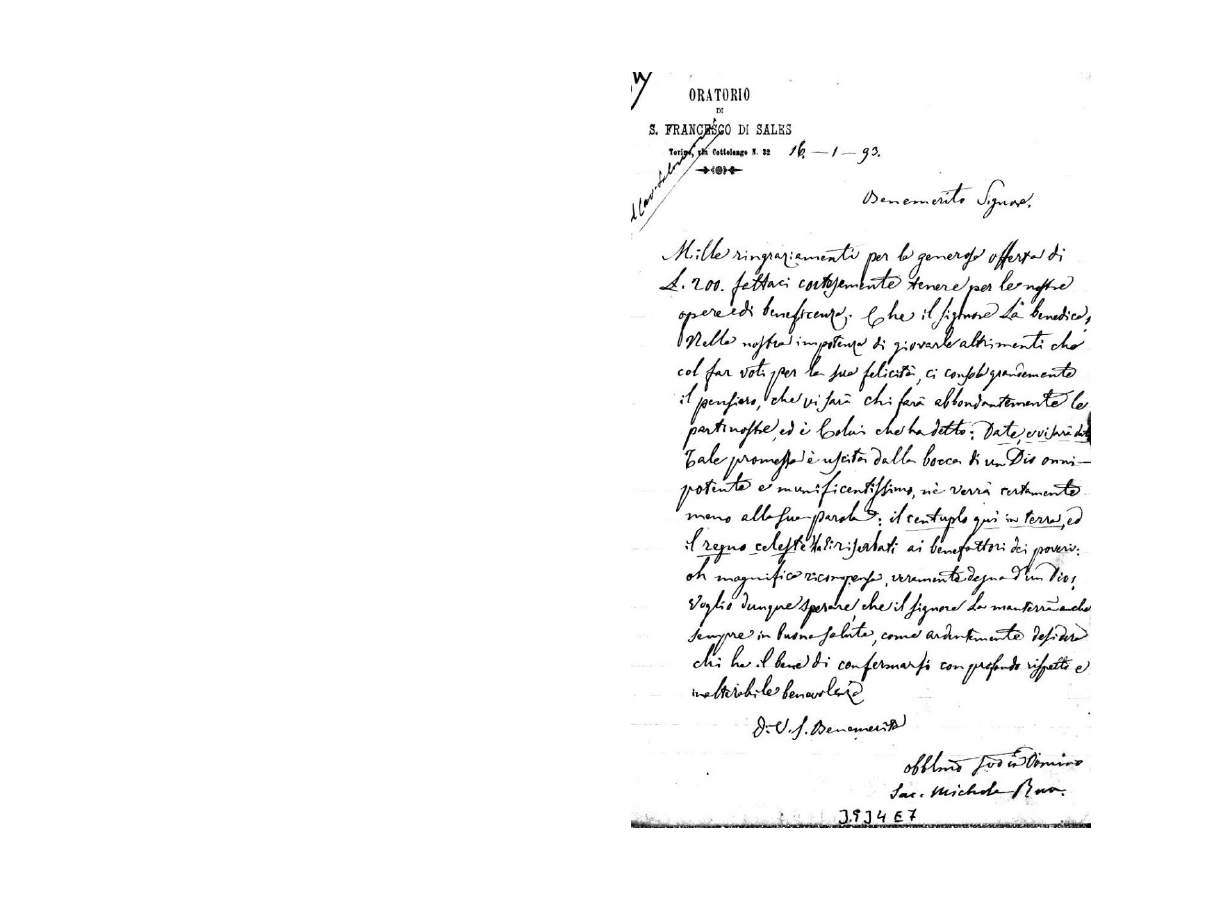 ORATORIO
DI
S. FRANCESCO DI SALES
Torino, via Cottolengo N. 32 16 – 1 – 93.
Benemerito Signore.
Mille ringraziamenti per la generosa offerta di
L. 200. fattaci cortesemente tenere per le nostre
opere di beneficenza. Che il Signore La benedica,
Nella nostra impotenza di giovarle altrimenti che
col far voti per la sua felicità, ci consola grandemente
il pensiero, che vi sarà chi farà abbondantemente le
parti nostre, ed è Colui che ha detto: Date, e vi sarà dato
Tale promessa è uscita dalla bocca di un Dio onni-
potente e munificentissimo, nè verrà certamente
meno alla sua parola: il centuplo qui in terra, ed
il regno celeste riserbati ai benefattori dei poveri:
oh magnifica ricompensa, veramente degna d'un Dio!
Voglio dunque sperare, che il Signore La manterrà anche
sempre in buona salute, come ardentemente desidera
chi ha il bene di confermarsi con profondo rispetto e
inalterabile benevolenza
di V. S. Benemerita
Obblmo Servo in Domino
Sac. Michele Rua.
3914 E7